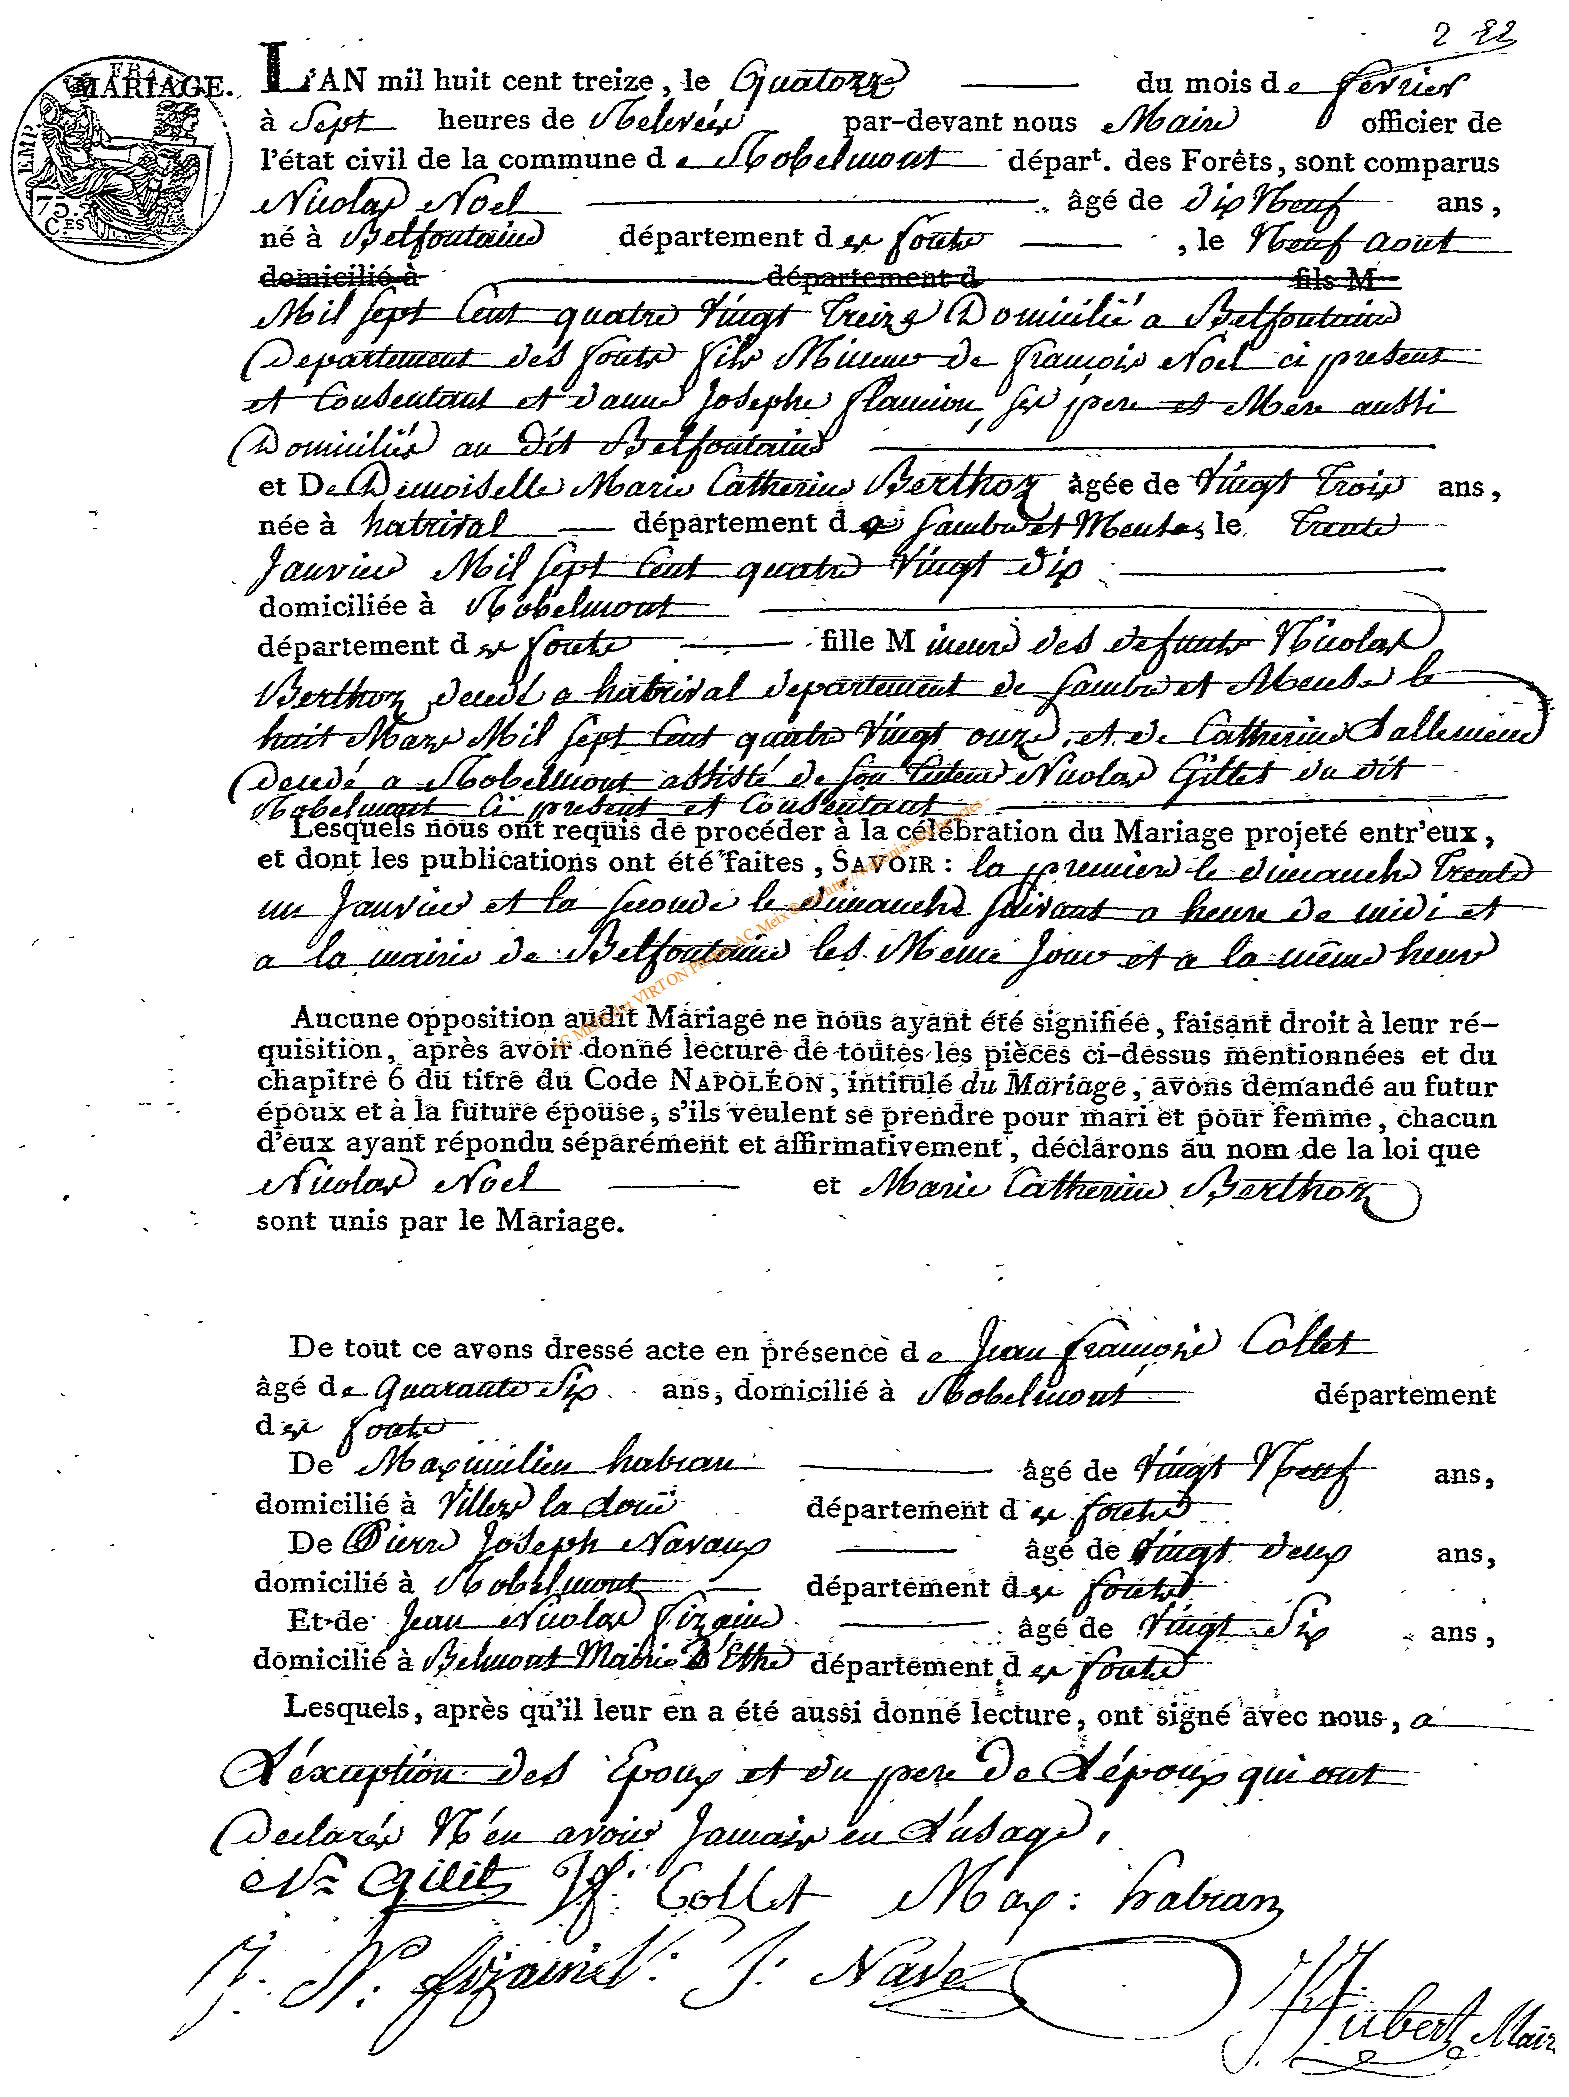 2 92
MARIAGE. L'AN mil huit cent treize, le Quatorze du mois de fevrier
à Sept heures de Relevéez par-devant nous Maire officier de
l'état civil de la commune de Robelmont départ. des Forêts, sont comparus
Nicolas Noel âgé de dix Neuf ans,
né à Belfontaine département des forets, le Neuf aout
domicilié à département d fils M
Mil sept Cent quatre Vingt Treize Domicilié a Belfontaine
Departement des forets fils Mineur de françois Noel ci present
et Consentant et d'anne Josephe flamion, ses pere et Mere aussi
Domiciliés au dit Belfontaine
et De Demoiselle Marie Catherine Berthoz âgée de Vingt Trois ans,
née à hatrival département de Sambre et Meuse, le Trente
Janvier Mil sept Cent quatre Vingt dix
domiciliée à Robelmont
département des forets fille Mineure des defunts Nicolas
Berthoz decedé a hatrival departement de Sambre et Meuse le
huit Mars Mil sept Cent quatre Vingt onze, et de Catherine
decedé a Robelmont assisté de son tuteur Nicolas Gillet du dit
Robelmont Ci present et Consentant
Lesquels nous ont requis de procéder à la célébration du Mariage projeté entr'eux,
et dont les publications ont été faites, SAVOIR : la premiere le dimanche Trente
un Janvier et la seconde le dimanche suivant a heure de midi et
a la mairie de Belfontaine les Meme Jour et a la même heure
Aucune opposition audit Mariage ne nous ayant été signifiée, faisant droit à leur ré-
quisition, après avoir donné lecture de toutes les pièces ci-dessus mentionnées et du
chapitre 6 du titre du Code NAPOLÉON, intitulé du Mariage, avons demandé au futur
époux et à la future épouse, s'ils veulent se prendre pour mari et pour femme, chacun
d'eux ayant répondu séparément et affirmativement, déclarons au nom de la loi que
Nicolas Noel et Marie Catherine Berthoz
sont unis par le Mariage.
De tout ce avons dressé acte en présence de Jean françois Collet
âgé de Quarante Six ans, domicilié à Robelmont département
des forets
De Maximilien habran âgé de Vingt Neuf ans,
domicilié à Villers la doüe département des forets
De Pierre Joseph Navaux âgé de Vingt deux ans,
domicilié à Robelmont département des forets
Et de Jean Nicolas Fizaine âgé de Vingt Six ans,
domicilié à Belmont Mairie D'Ethe département des forets
Lesquels, après qu'il leur en a été aussi donné lecture, ont signé avec nous, a
L'éxception des Epoux et du pere de L'époux qui ont
Declarés N'en avoir Jamais eu L'usage.
Ns Gillet Jf: Collet Max: habran
J. N: fizaine J: Nave
Hubert Mair